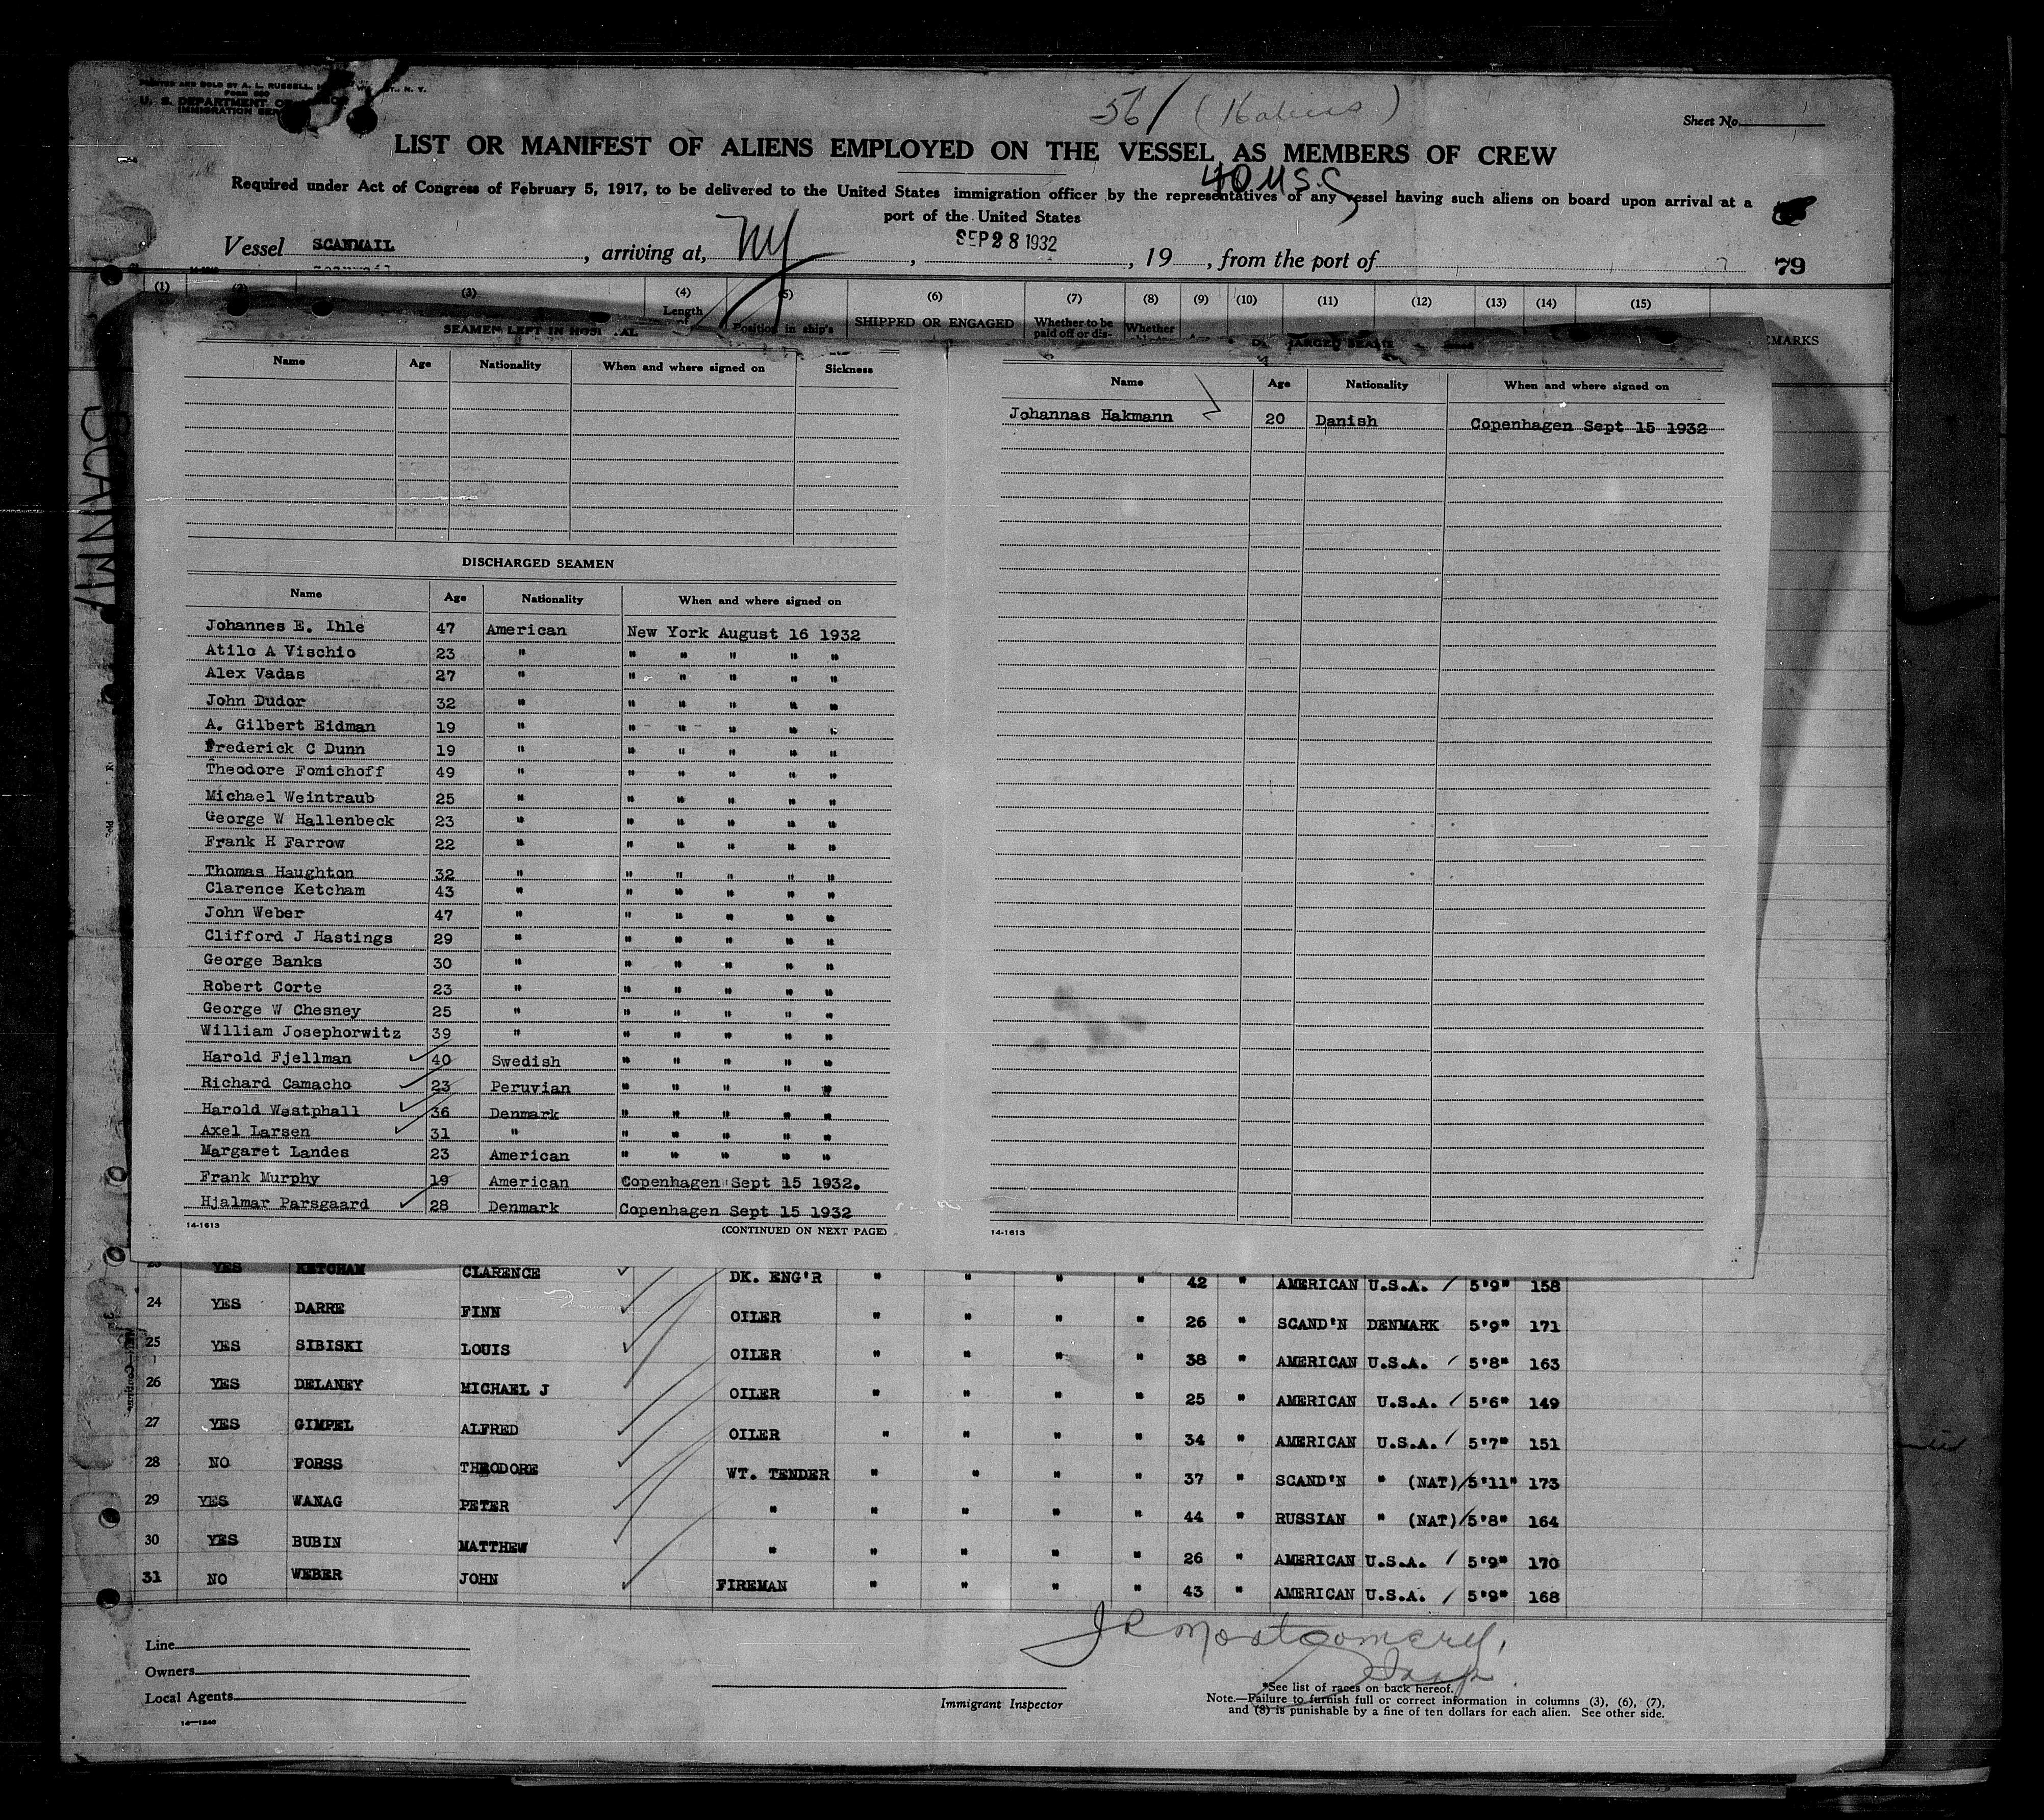 PRINTED AND SOLD BY A. L. RUSSELL, N. Y.
Form 680
U. S. DEPARTMENT OF
IMMIGRATION SER
561
Sheet No.
LIST OR MANIFEST OF ALIENS EMPLOYED ON THE VESSEL AS MEMBERS OF CREW
40 U S C
Required under Act of Congress of February 5, 1917, to be delivered to the United States immigration officer by the representatives of any vessel having such aliens on board upon arrival at a
port of the United States
Vessel SCANMAIL, arriving at, NY, SEP 28 1932, 19, from the port of
79
(1) (2) (3) (4) (5) (6) (7) (8) (9) (10) (11) (12) (13) (14) (15)
Length of Position in ship's SHIPPED OR ENGAGED Whether to be paid off or dis- Whether
SCANM
SEAMEN LEFT IN HOSPITAL
Name Age Nationality When and where signed on Sickness
DISCHARGED SEAMEN
Name Age Nationality When and where signed on
Johannes E. Ihle 47 American New York August 16 1932
Atilo A Vischio 23 " " " " " "
Alex Vadas 27 " " " " " "
John Dudor 32 " " " " " "
A. Gilbert Eidman 19 " " " " " "
Frederick C Dunn 19 " " " " " "
Theodore Fomichoff 49 " " " " " "
Michael Weintraub 25 " " " " " "
George W Hallenbeck 23 " " " " " "
Frank H Farrow 22 " " " " " "
Thomas Haughton 32 " " " " " "
Clarence Ketcham 43 " " " " " "
John Weber 47 " " " " " "
Clifford J Hastings 29 " " " " " "
George Banks 30 " " " " " "
Robert Corte 23 " " " " " "
George W Chesney 25 " " " " " "
William Josephorwitz 39 " " " " " "
Harold Fjellman 40 Swedish " " " " "
Richard Camacho 23 Peruvian " " " " "
Harold Westphall 36 Denmark " " " " "
Axel Larsen 31 " " " " " "
Margaret Landes 23 American " " " " "
Frank Murphy 19 American Copenhagen Sept 15 1932.
Hjalmar Parsgaard 28 Denmark Copenhagen Sept 15 1932
14-1613 (CONTINUED ON NEXT PAGE)
Name Age Nationality When and where signed on
Johannas Hakmann 20 Danish Copenhagen Sept 15 1932
14-1613
23 YES KETCHAM CLARENCE DK. ENG'R " " " " 42 " AMERICAN U.S.A. 5'9" 158
24 YES DARRE FINN OILER " " " " 26 " SCAND'N DENMARK 5'9" 171
25 YES SIBISKI LOUIS OILER " " " " 38 " AMERICAN U.S.A. 5'8" 163
26 YES DELANEY MICHAEL J OILER " " " " 25 " AMERICAN U.S.A. 5'6" 149
27 YES GIMPEL ALFRED OILER " " " " 34 " AMERICAN U.S.A. 5'7" 151
28 NO FORSS THEODORE WT. TENDER " " " " 37 " SCAND'N " (NAT) 5'11" 173
29 YES WANAG PETER " " " " " 44 " RUSSIAN " (NAT) 5'8" 164
30 YES BUBIN MATTHEW " " " " " 26 " AMERICAN U.S.A. 5'9" 170
31 NO WEBER JOHN FIREMAN " " " " 43 " AMERICAN U.S.A. 5'9" 168
J R Montgomery,
Insp.
Line
Owners
Local Agents
14-1240
Immigrant Inspector
*See list of races on back hereof.
Note.—Failure to furnish full or correct information in columns (3), (6), (7),
and (8) is punishable by a fine of ten dollars for each alien. See other side.